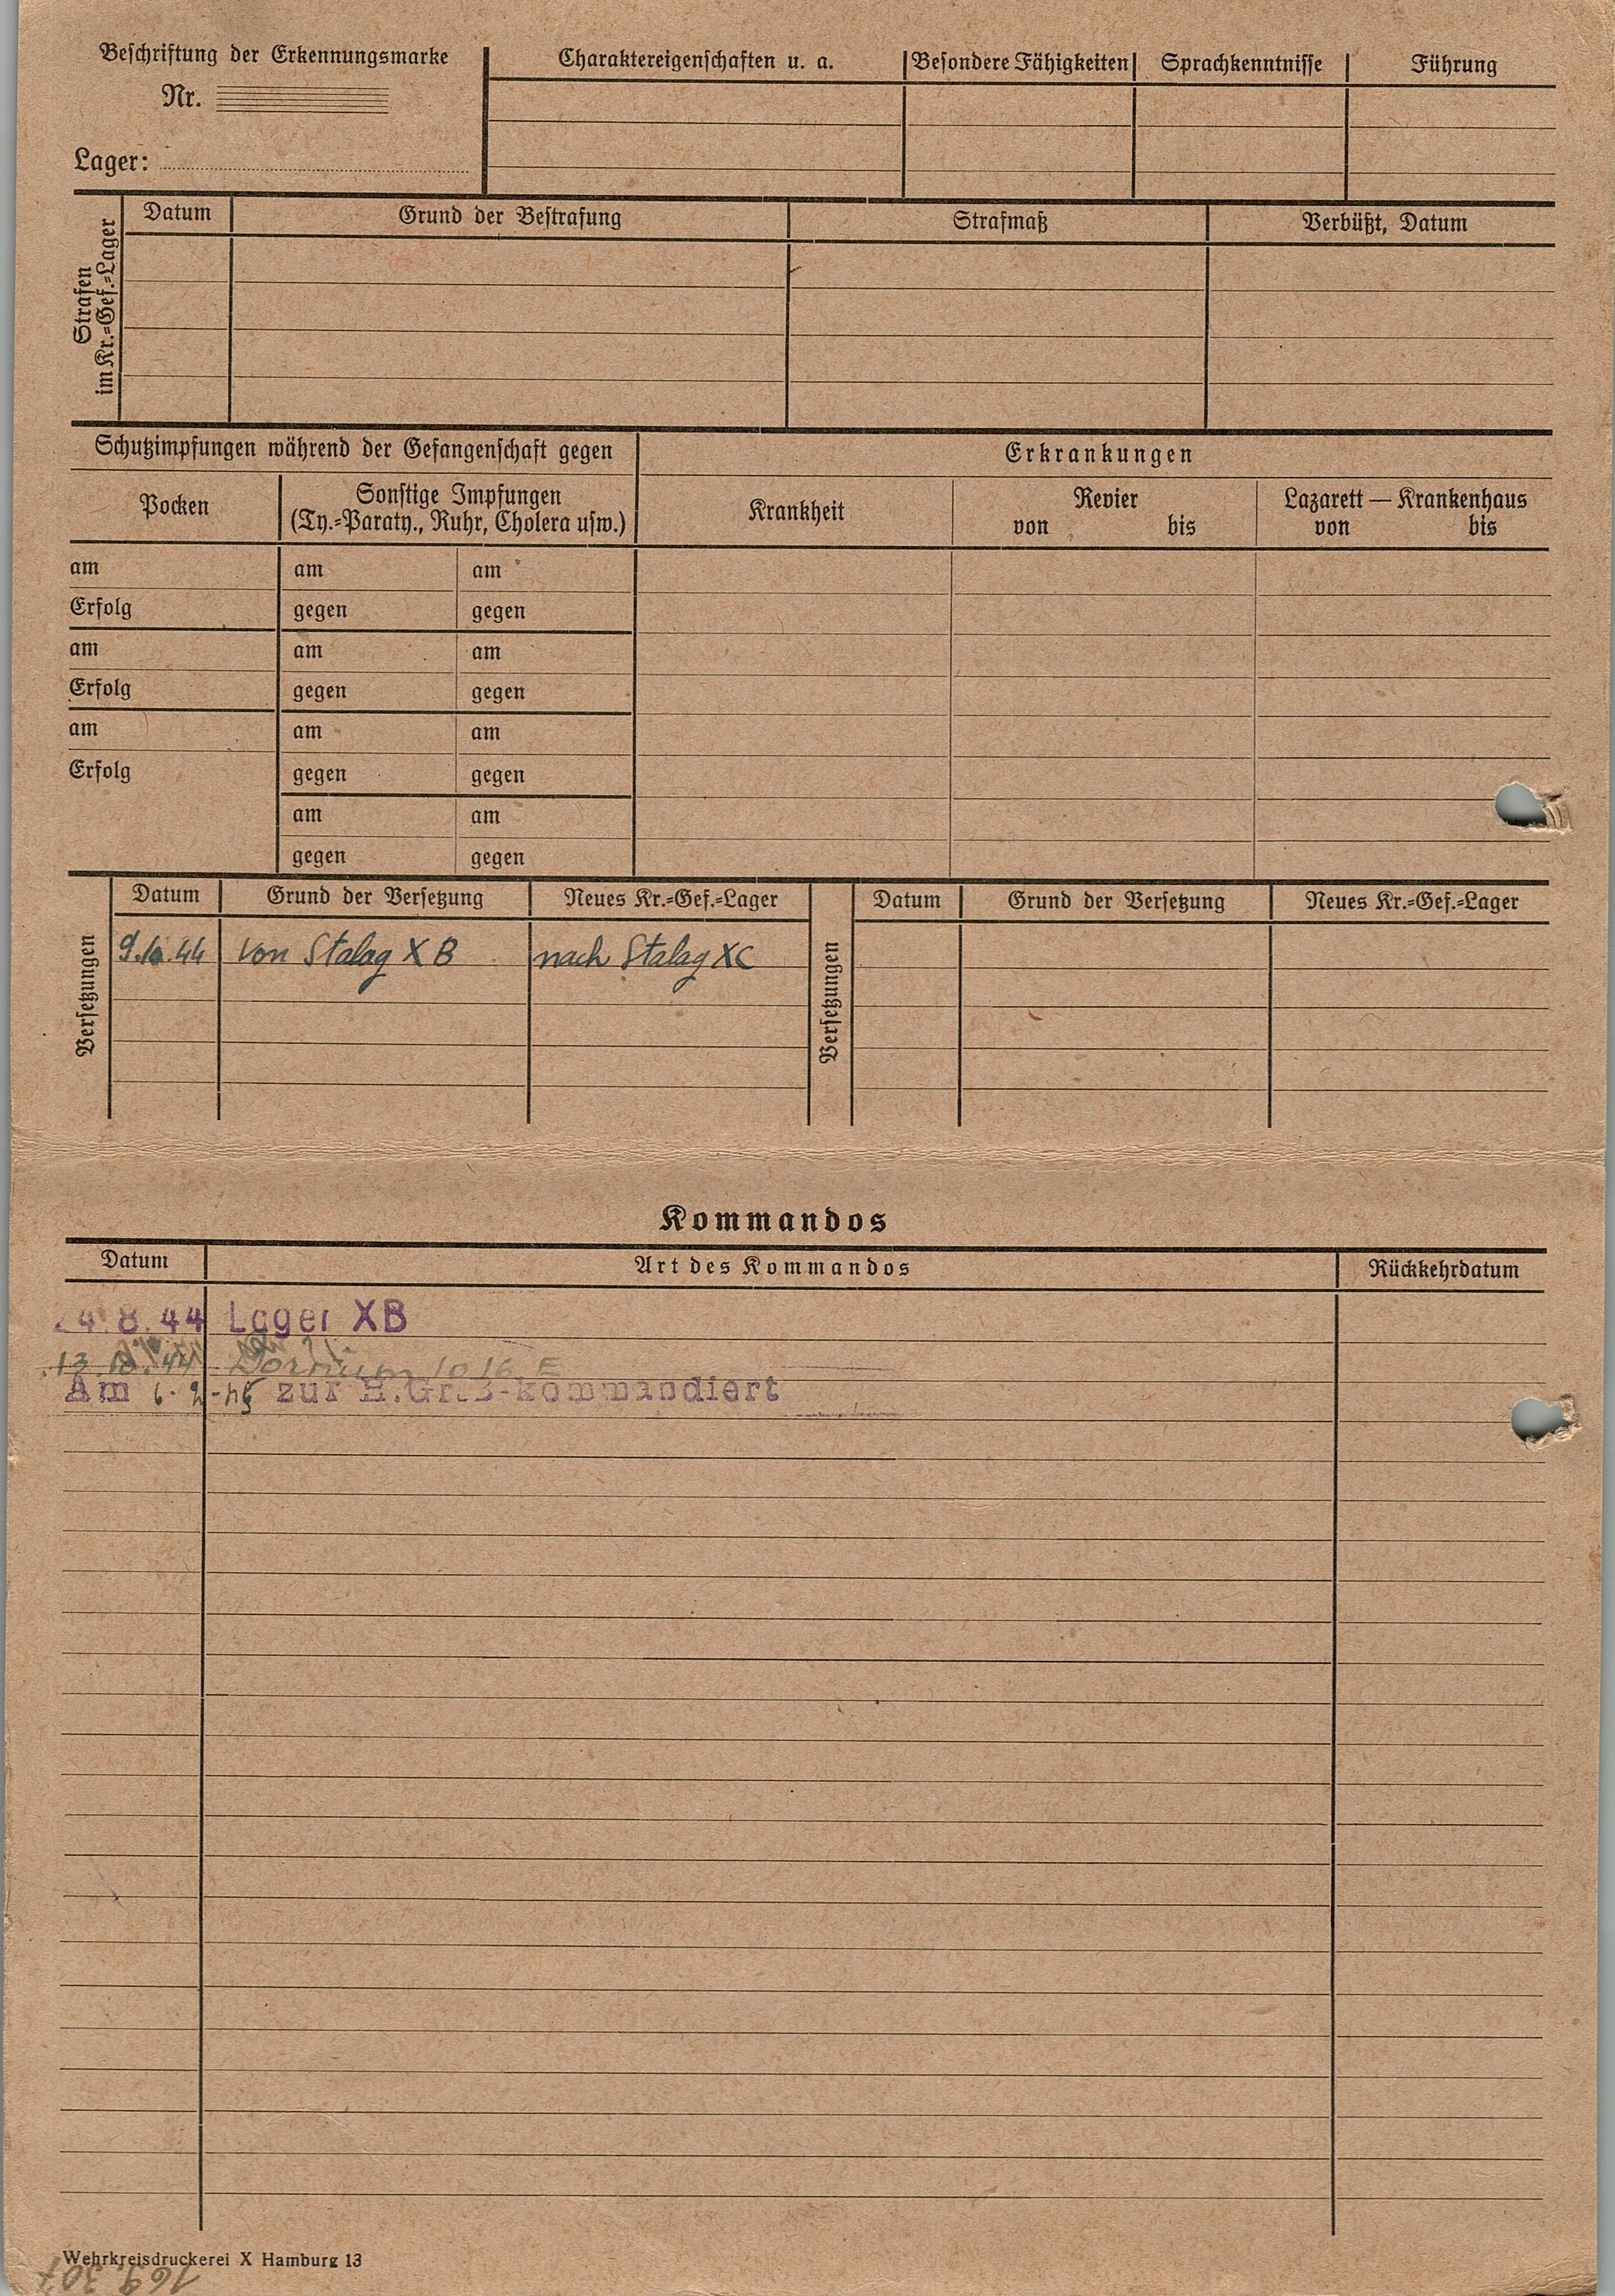 Beschriftung der Erkennungsmarke
Nr.
Lager:
Charaktereigenschaften u. a. Besondere Fähigkeiten Sprachkenntnisse Führung
Strafen
im Kr.=Gef.=Lager
Datum Grund der Bestrafung Strafmaß Verbüßt, Datum
Schutzimpfungen während der Gefangenschaft gegen Erkrankungen
Pocken
Sonstige Impfungen
(Ty.=Paraty., Ruhr, Cholera usw.)
Krankheit
Revier
von bis
Lazarett — Krankenhaus
von bis
am am am
Erfolg gegen gegen
am am am
Erfolg gegen gegen
am am am
Erfolg gegen gegen
am am
gegen gegen
Versetzungen
Datum Grund der Versetzung Neues Kr.=Gef.=Lager
9.10.44 von Stalag X B nach Stalag XC
Versetzungen
Datum Grund der Versetzung Neues Kr.=Gef.=Lager
Kommandos
Datum Art des Kommandos Rückkehrdatum
4.8.44 Lager XB
13.10.44 Dornum 1016 E
Am 6-2-45 zur H.Gr.B-kommandiert
Wehrkreisdruckerei X Hamburg 13
169.307